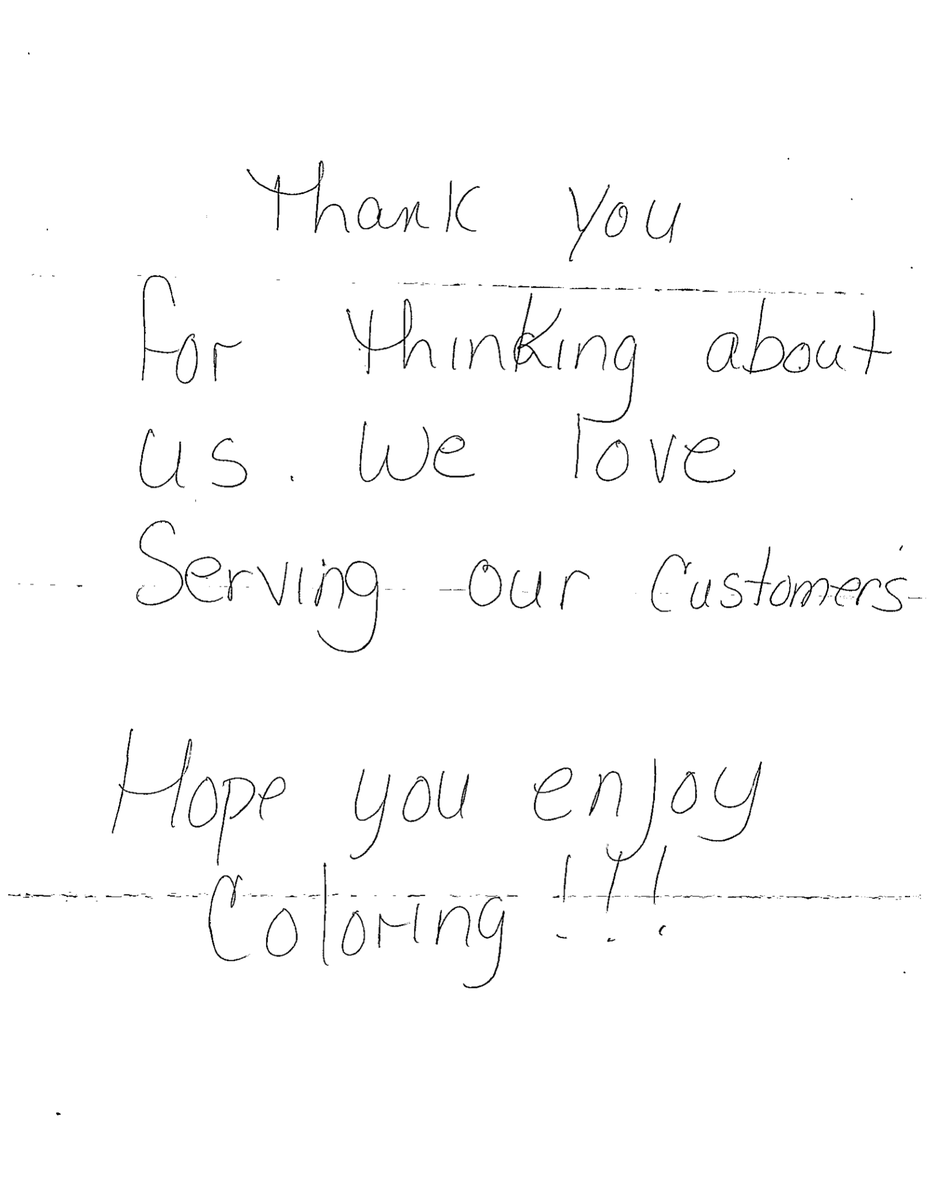 Thank you
for thinking about
us. We love
Serving our Customers
Hope you enjoy
Coloring !!!